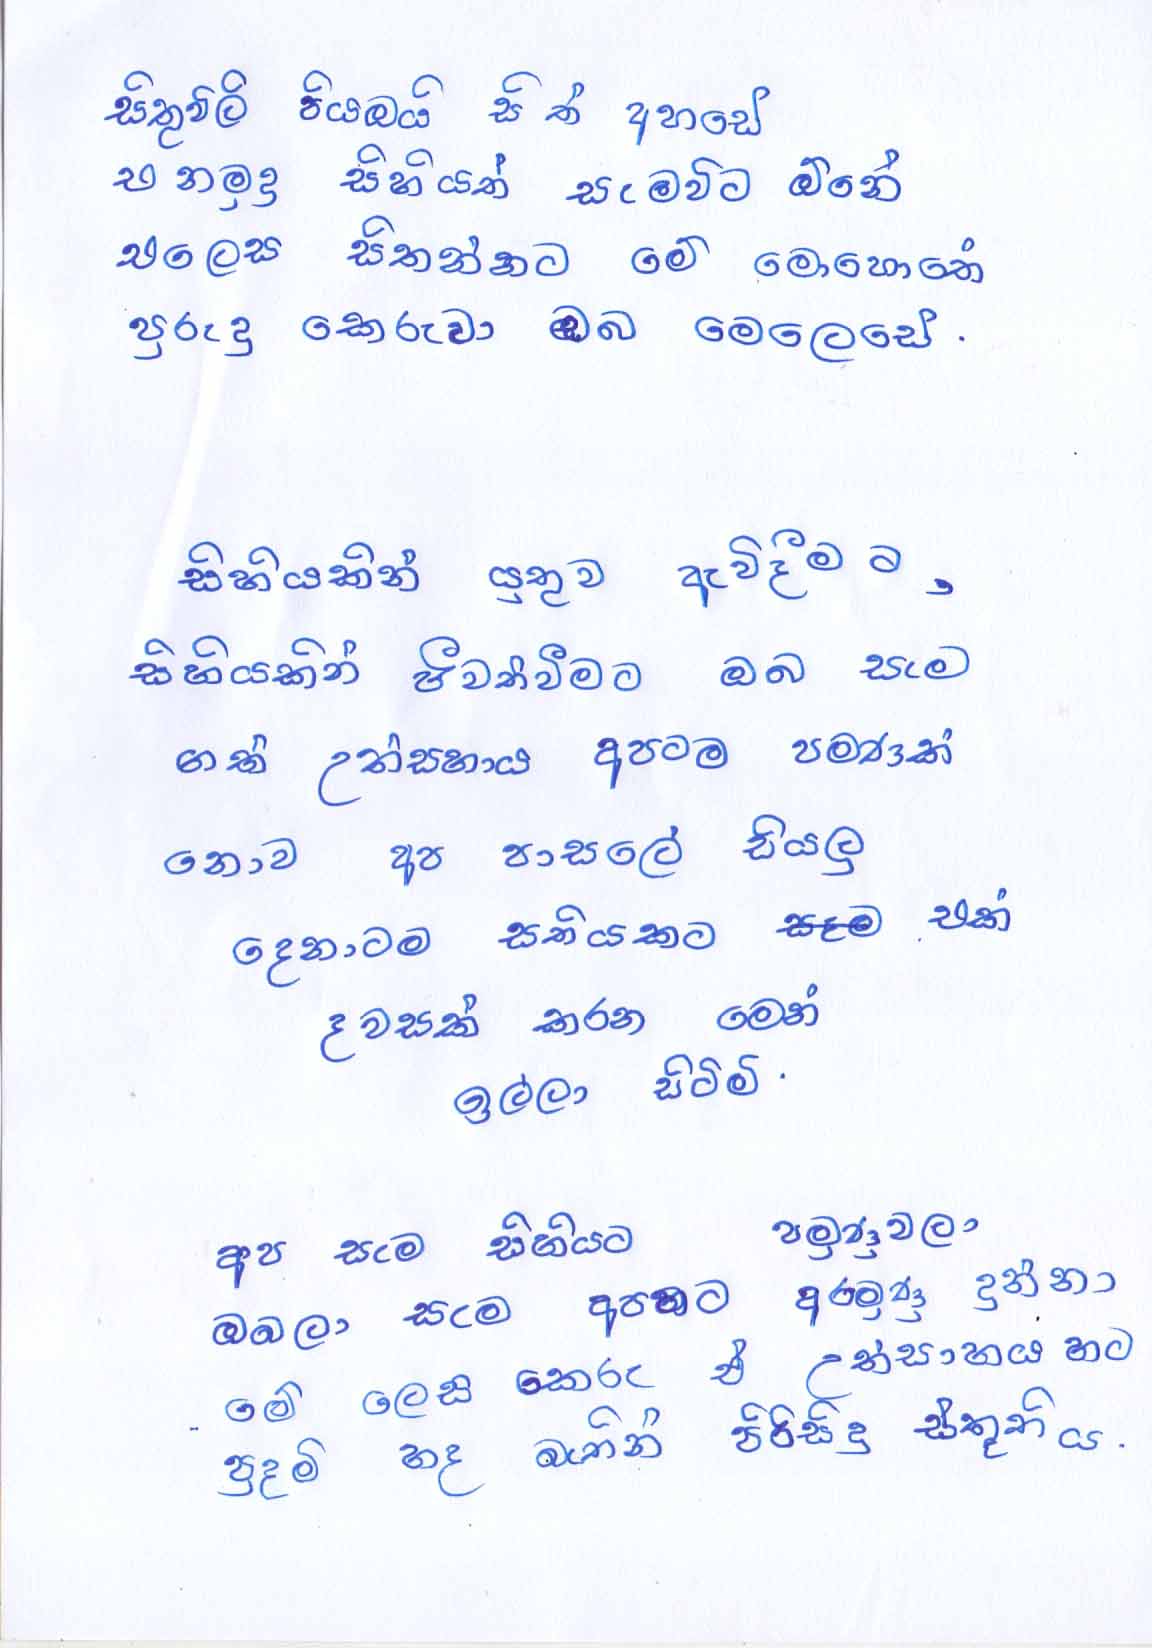 සිතුවිලි පියඹයි සිත් අහසේ
එනමුදු සිහියත් සැමවිට ඕනේ
එලෙස සිතන්නට මේ මොහොතේ
පුරුදු කෙරුවා ඔබ මෙලෙසේ.
සිහියකින් යුතුව ඇවිදීමට,
සිහියකින් ජීවත්වීමට ඔබ සැම
ගත් උත්සහාය අපටම පමණක්
නොව අප පාසලේ සියලු
දෙනාටම සතියකට සෑම එක්
දවසක් කරන මෙන්
ඉල්ලා සිටිමි.
අප සැම සිහියට පමුණුවලා
ඔබලා සැම අපහට අරමුණු දුන්නා
මේ ලෙසි කෙරු ඒ උත්සාහය හට
පුදමි හද බැතින් පිරිසිදු ස්තුතිය.